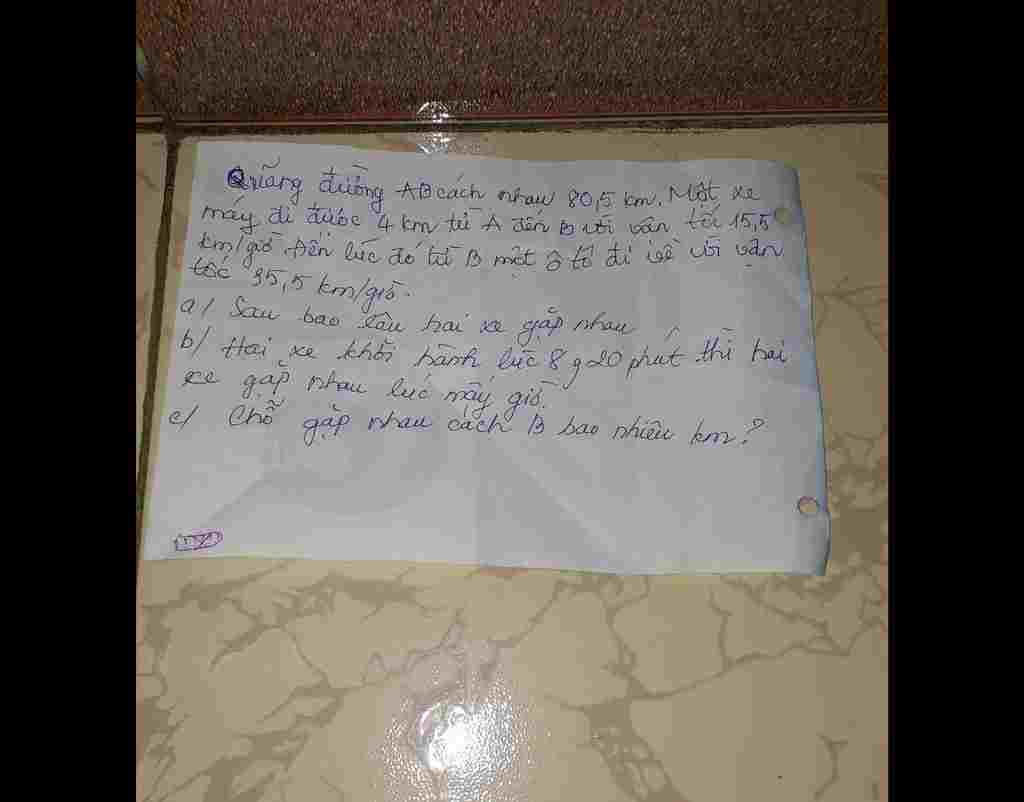 Quãng đường AB cách nhau 80,5 km. Một xe
máy đi được 4 km từ A đến B với vận tốc 15,5
km/giờ. Đến lúc đó từ B một ô tô đi về với vận
tốc 35,5 km/giờ.
a/ Sau bao lâu hai xe gặp nhau
b/ Hai xe khởi hành lúc 8 g 20 phút thì hai
xe gặp nhau lúc mấy giờ.
c/ Chỗ gặp nhau cách B bao nhiêu km?